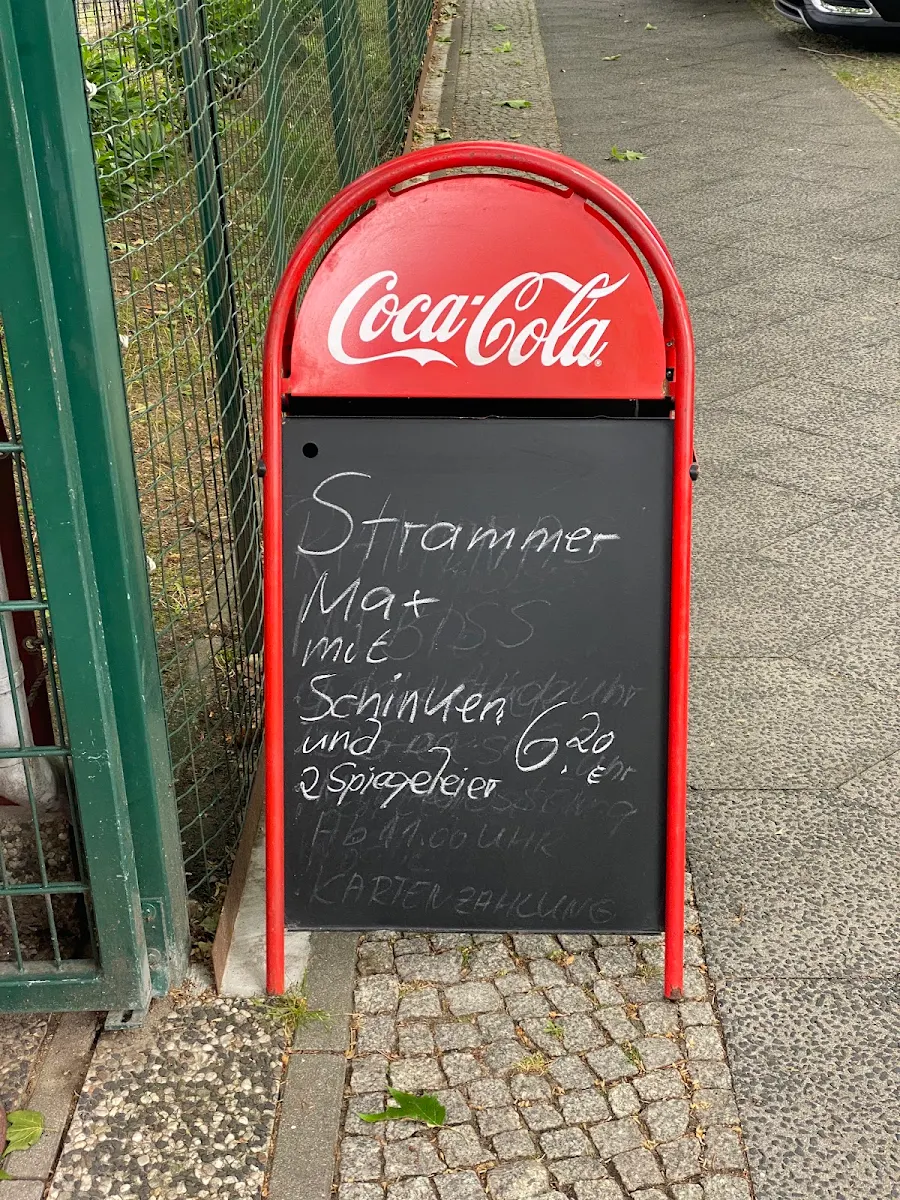 Coca-Cola
Strammer
Max
mit
Schinken
und 6.20 €
2 Spiegeleier
Ab 11.00 UHR
KARTENZAHLUNG